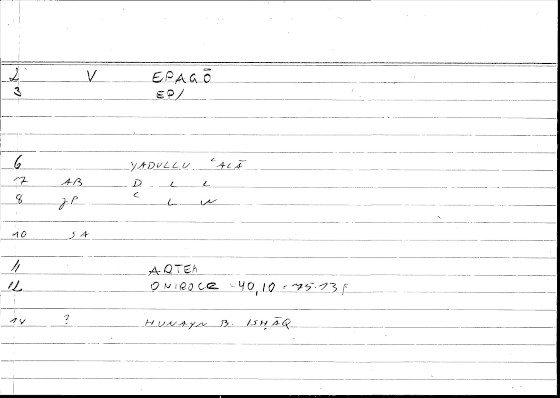 2 V EPAGŌ
3 EPI
6 YADULLU ʿALĀ
7 AB D L L
8 JP ʿ L W
10 SA
11 ARTEM
12 ONIROCR 40,10 = 75.13
14 ? ḤUNAYN B. ISḤĀQ